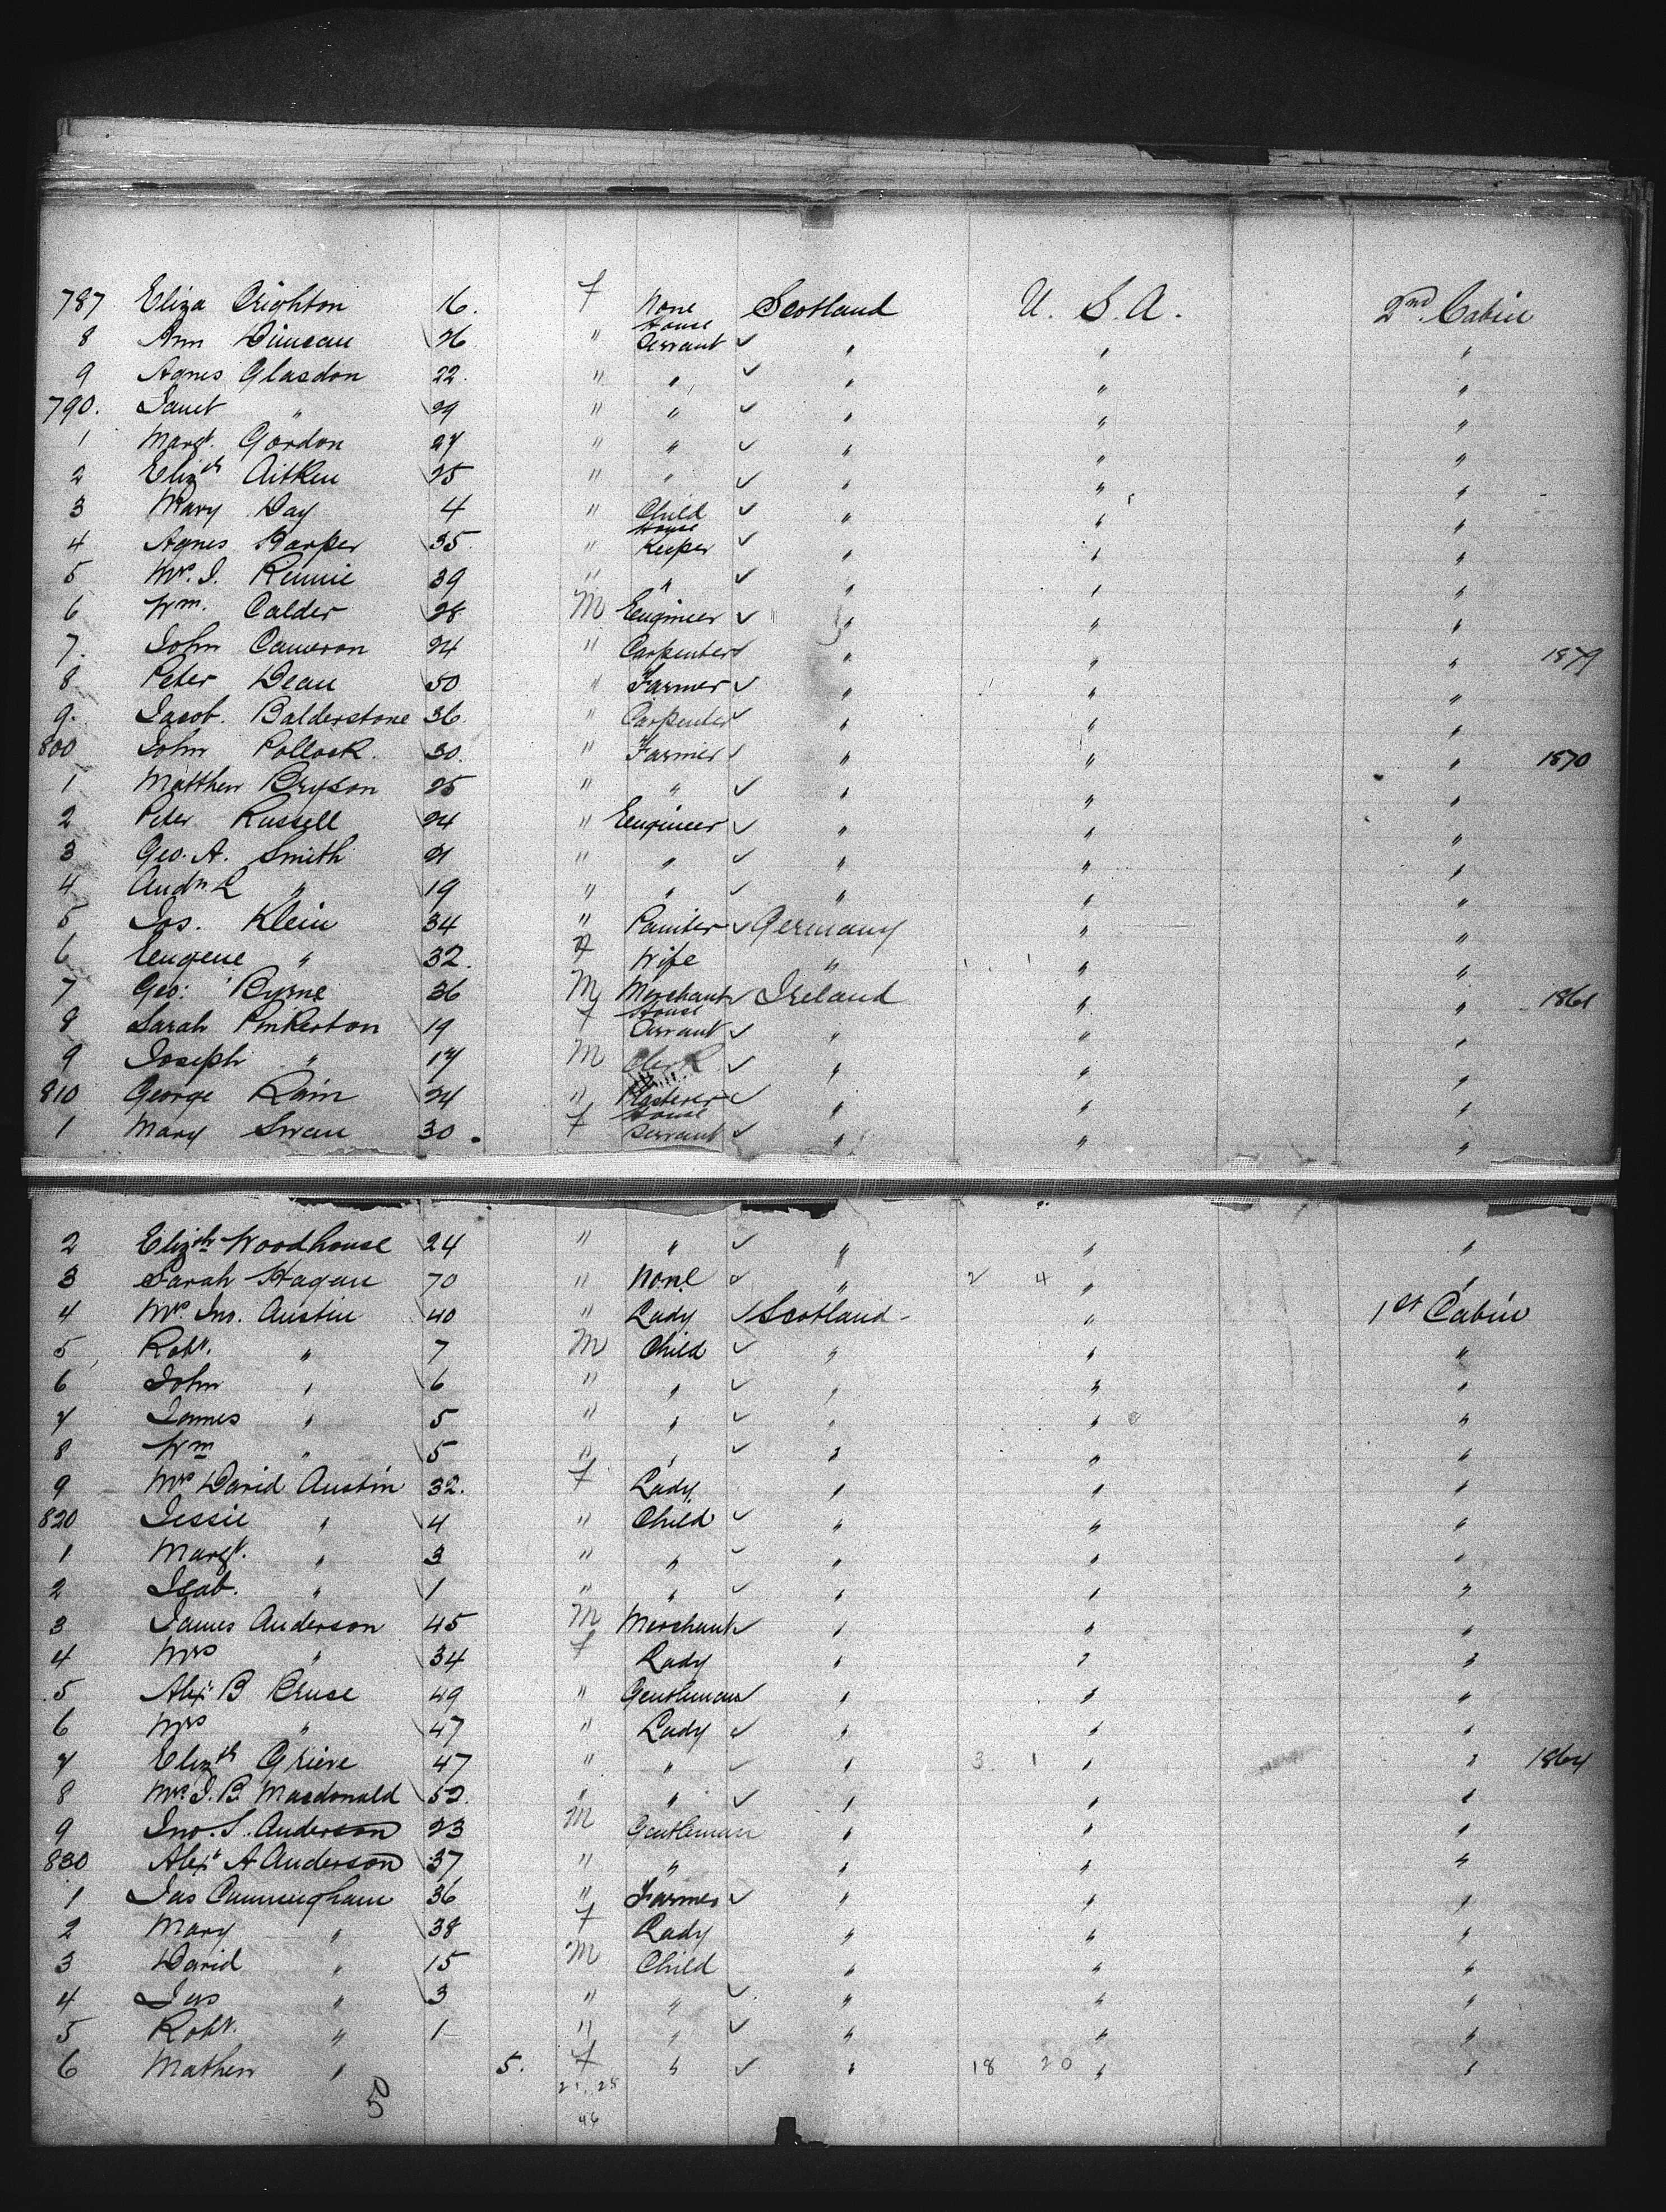 787 Eliza Crighton 16. f None Scotland U. S. A. 2nd Cabin
8 Ann Duncan 26 " House Servant " " "
9 Agnes Glasdon 22. " " " " "
790. Janet " 29 " " " " "
1 Margt. Gordon 27 " " " " "
2 Elizth Aitken 25 " " " " "
3 Mary Day 4 " Child " " "
4 Agnes Harper 35 " House Keeper " " "
5 Mrs. J. Rennie 39 " " " " "
6 Wm. Calder 28 M Engineer " " "
7. John Cameron 24 " Carpenter " " " 1879
8 Peter Dean 50 " Farmer " " "
9. Jacob. Balderstone 36 " Carpenter " " "
800 John Pollock. 30. " Farmer " " " 1870
1 Matthew Bryson 25 " " " " "
2 Peter Russell 24 " Engineer " " "
3 Geo. A. Smith 21 " " " " "
4 Andw. L " 19 " " " " "
5 Jos. Klein 34 " Painter Germany " "
6 Eugene " 32. f Wife " " "
7 Geo: Byrne 36 M Merchant Ireland " " 1861
8 Sarah Pinkerton 19 f House Servant " " "
9 Joseph " 17 M Clerk " " "
810 George Rain 24 " Plasterer " " "
1 Mary Swan 30. f House Servant " " "
2 Elizth Woodhouse 24 " " " " "
3 Sarah Hagan 70 " None " 2 4 " "
4 Mrs Jno. Austin 40 " Lady Scotland " 1st Cabin
5 Robt. " 7 M Child " " "
6 John " 6 " " " " "
7 James " 5 " " " " "
8 Wm " 5 " " " " "
9 Mrs David Austin 32. f Lady " " "
820 Jessie " 4 " Child " " "
1 Margt. " 3 " " " " "
2 Isab. " 1 " " " " "
3 James Anderson 45 M Merchant " " "
4 Mrs " 34 f Lady " " "
5 Alexr B Bruse 49 " Gentleman " " "
6 Mrs " 47 " Lady " " "
7 Elizth Grieve 47 " " " 3 1 " " 1864
8 Mrs. J. B. Macdonald 52. " " " " "
9 Jno. S. Anderson 23 M Gentleman " " "
830 Alexr A Anderson 37 " " " " "
1 Jas Cunningham 36 " Farmer " " "
2 Mary " 38 f Lady " " "
3 David " 15 M Child " " "
4 Jas " 3 " " " " "
5 Robt. " 1 " " " " "
6 Mathew " 5. f " " 18 20 " "
5
46